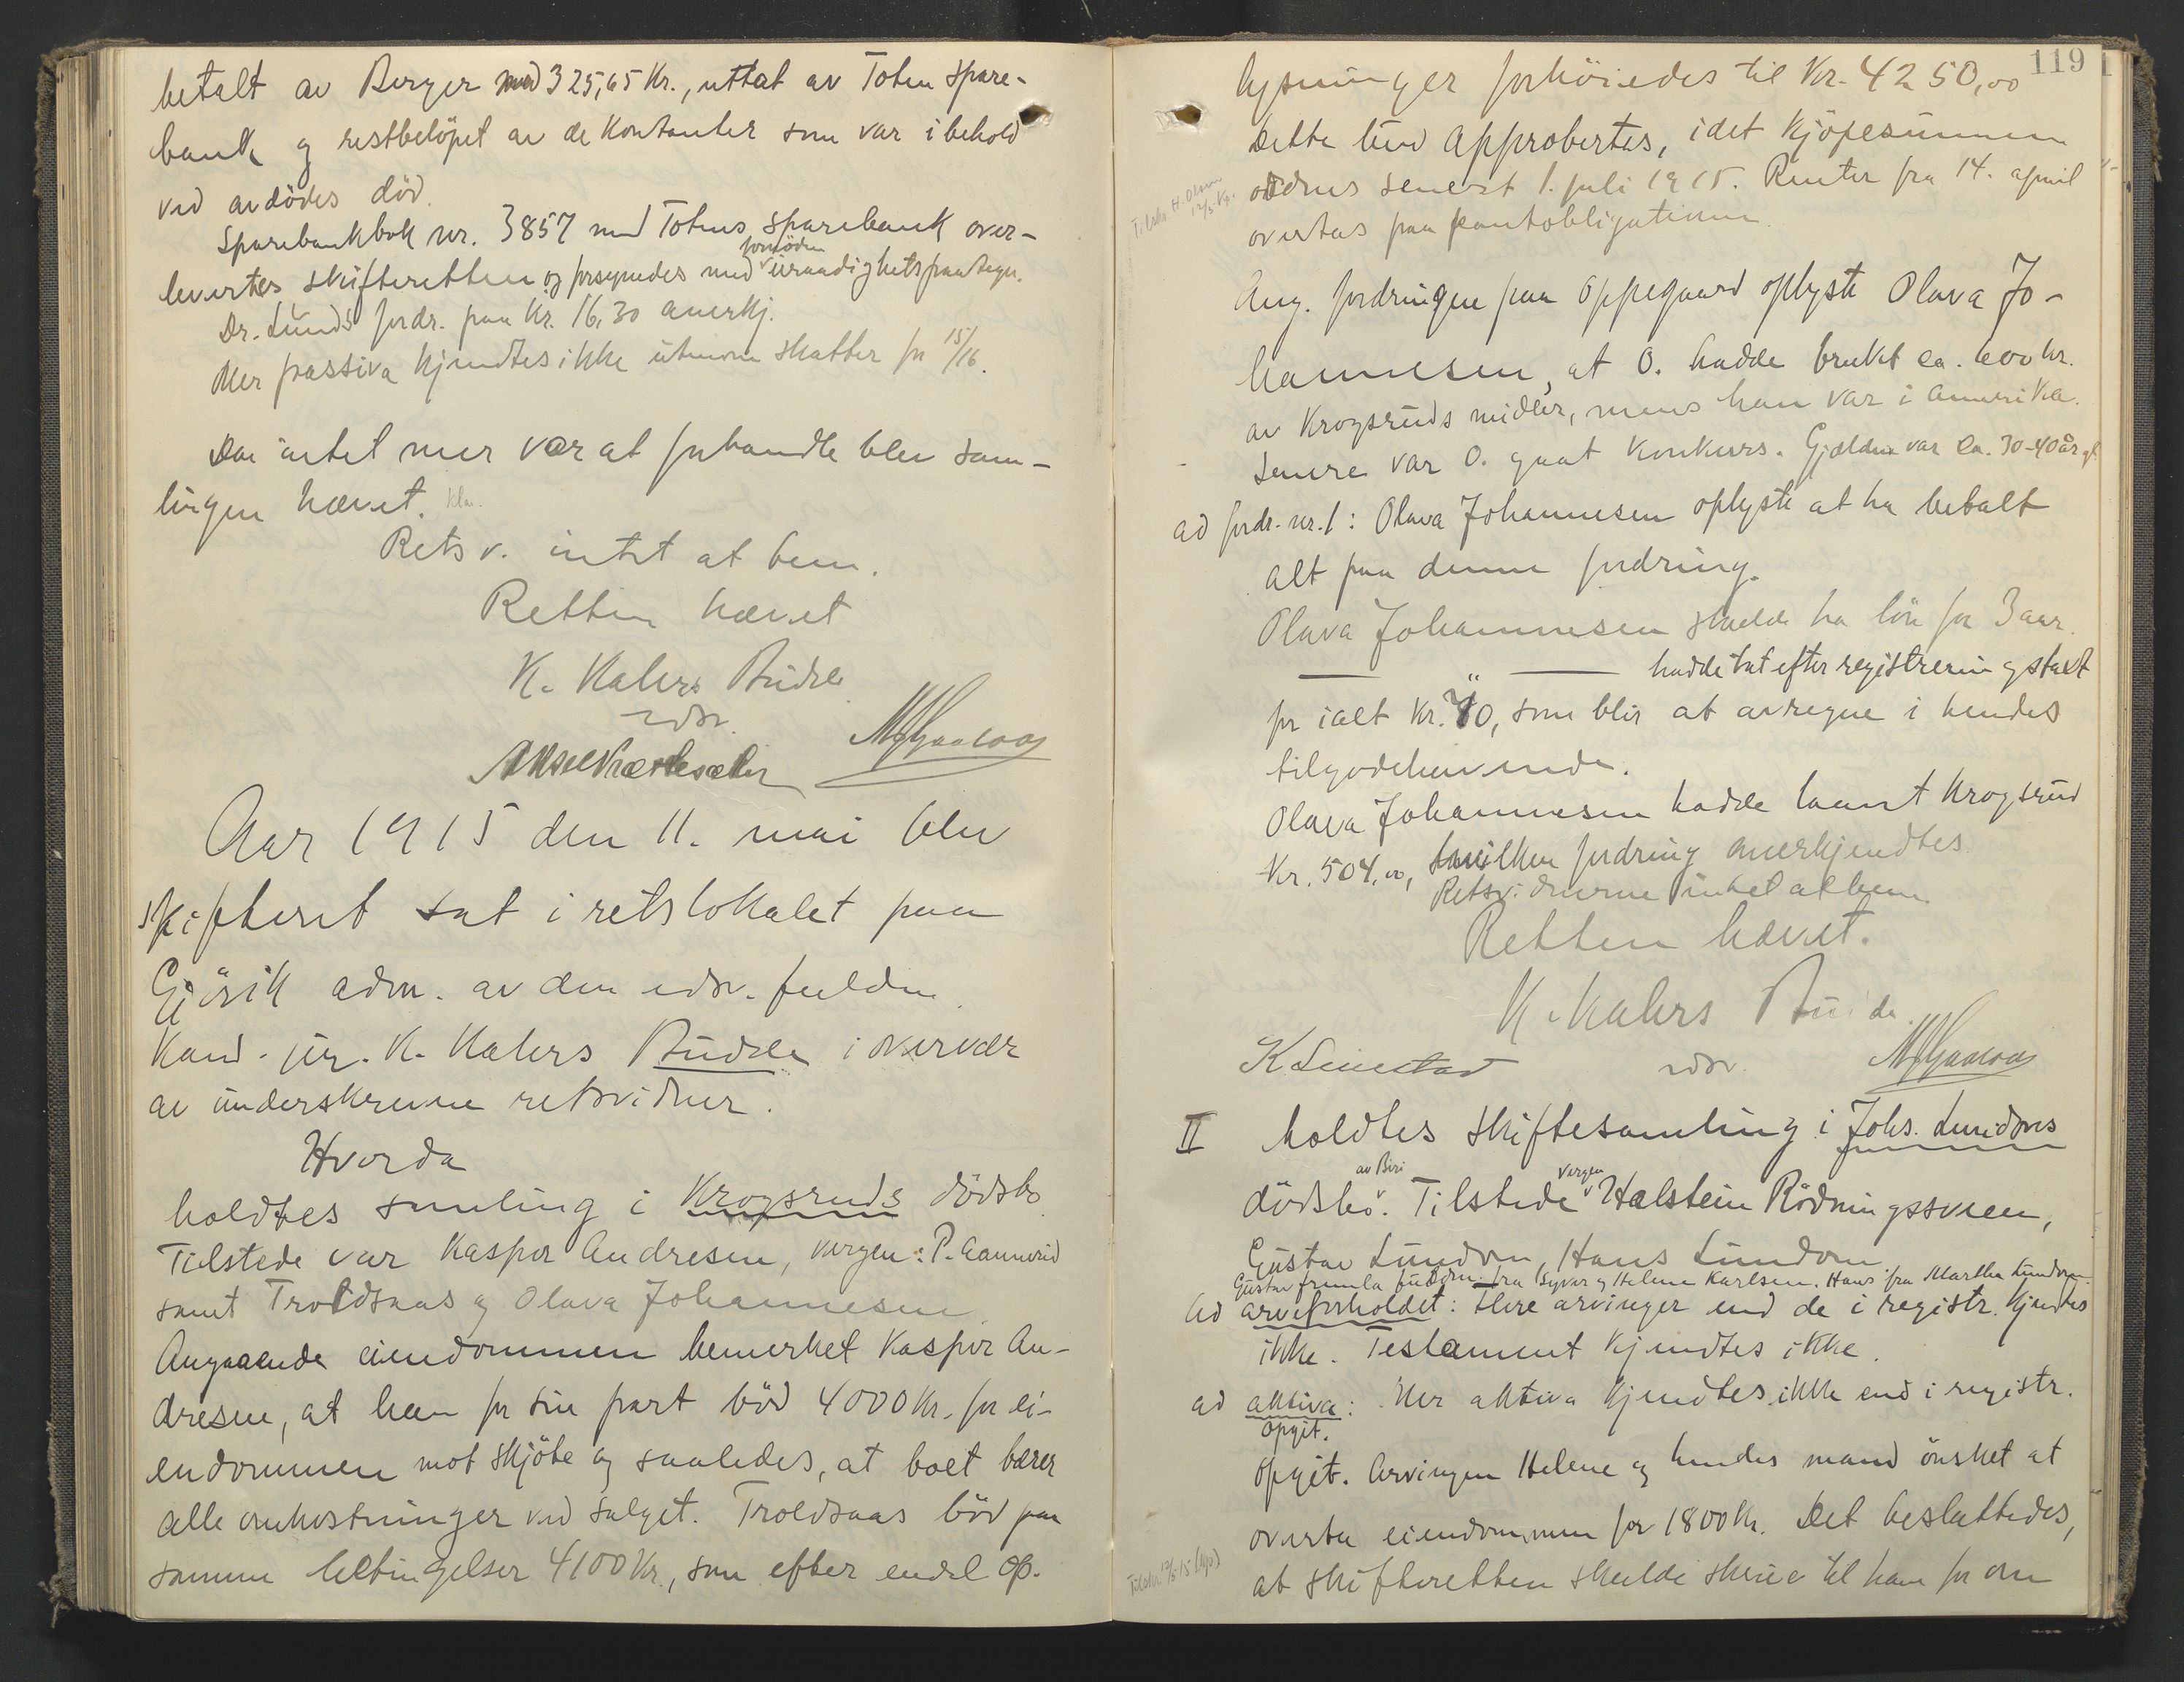 betalt av Berger med 325,65 Kr., uttat av Toten Spare-
bank og restbelöpet av de Kontanter som var i behold
ved avdödes död.
Sparebankbok nr. 3857 med Totens Sparebank over-
levertes skifteretten og forsynedes med fornöden uraadighetspaategn.
Dr. Lunds fordr. paa Kr. 16,30 anerkj.
Mer passiva kjendtes ikke utenom skatter for 15/16.
Da intet mer var at forhandle blev sam-
lingen hævet.
Retsv. intet at bem.
Retten hævet
K. Kahrs Budde
edsv.
M Gaalaas
Aar 1915 den 11. mai blev
skifteret sat i retslokalet paa
Gjövik adm. av den edsv. fuldm.
Kand. jur. K. Kahrs Budde i overvær
av underskrevne retsvidner.
Hvorda
holdtes samling i Krogsruds dödsbo
Tilstede var Kaspor Andresen, vergen: P. Aamodt
samt Troldsaas og Olava Johannesen.
Angaaende eiendommen bemerket Kaspor An-
dresen, at han for sin part böd 4000 Kr. for ei-
endommen mot skjöte og saaledes, at boet bærer
alle omkostninger ved salget. Troldsaas böd paa
samme betingelser 4100 Kr., som efter endel op-
119
lysninger forhöiedes til Kr. 4250,00
Dette bud approbertes, idet kjöpesummen
ordnes senest 1. juli 1915. Renter fra 14. april
overtas paa pantobligationen.
Ang. fordringen paa Oppegaard oplyste Olava Jo-
hannesen, at O. hadde brukt ca. 600 kr.
av Krogsruds midler, mens han var i Amerika.
Senere var O. gaat konkurs. Gjælden var ca. 30-40 år gl.
ad fordr. nr. 1: Olava Johannesen oplyste at ha betalt
alt paa denne fordring.
Olava Johannesen skulde ha lön for 3 aar.
— " — hadde tat efter registreringstakst
for ialt Kr. 70, som blir at avregne i hendes
tilgodehavende.
Olava Johannesen hadde laant Krogsrud
Kr. 504,00, hvilken fordring anerkjendtes
Retsvidnerne intet at bem.
Retten hævet.
K. Kahrs Budde.
edsv.
M Gaalaas
II holdtes skiftesamling i Johs. Lundoms
dödsbo av Biri. Tilstede vergen Halstein Rödningssveen,
Gustav Lundom, Hans Lundom
Gustav fremla fuldm. fra Syver og Helene Karlsen. Hans fra Martha Lundom.
ad arveforholdet: Flere arvinger end de i registr. kjendtes
ikke. Testament kjendtes ikke.
ad aktiva: Mer aktiva kjendtes ikke end i registr.
opgit.
opgit. Arvingen Helene og hendes mand önsket at
overta eiendommen for 1800 Kr. Det besluttedes,
at skifteretten skulde skrive til ham for om